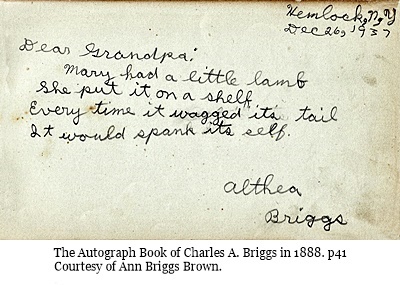 Hemlock, N.Y
Dec 26, 1937
Dear Grandpa:
Mary had a little lamb
She put it on a shelf
Every time it wagged its tail
It would spank its self.
Althea
Briggs
The Autograph Book of Charles A. Briggs in 1888. p41
Courtesy of Ann Briggs Brown.